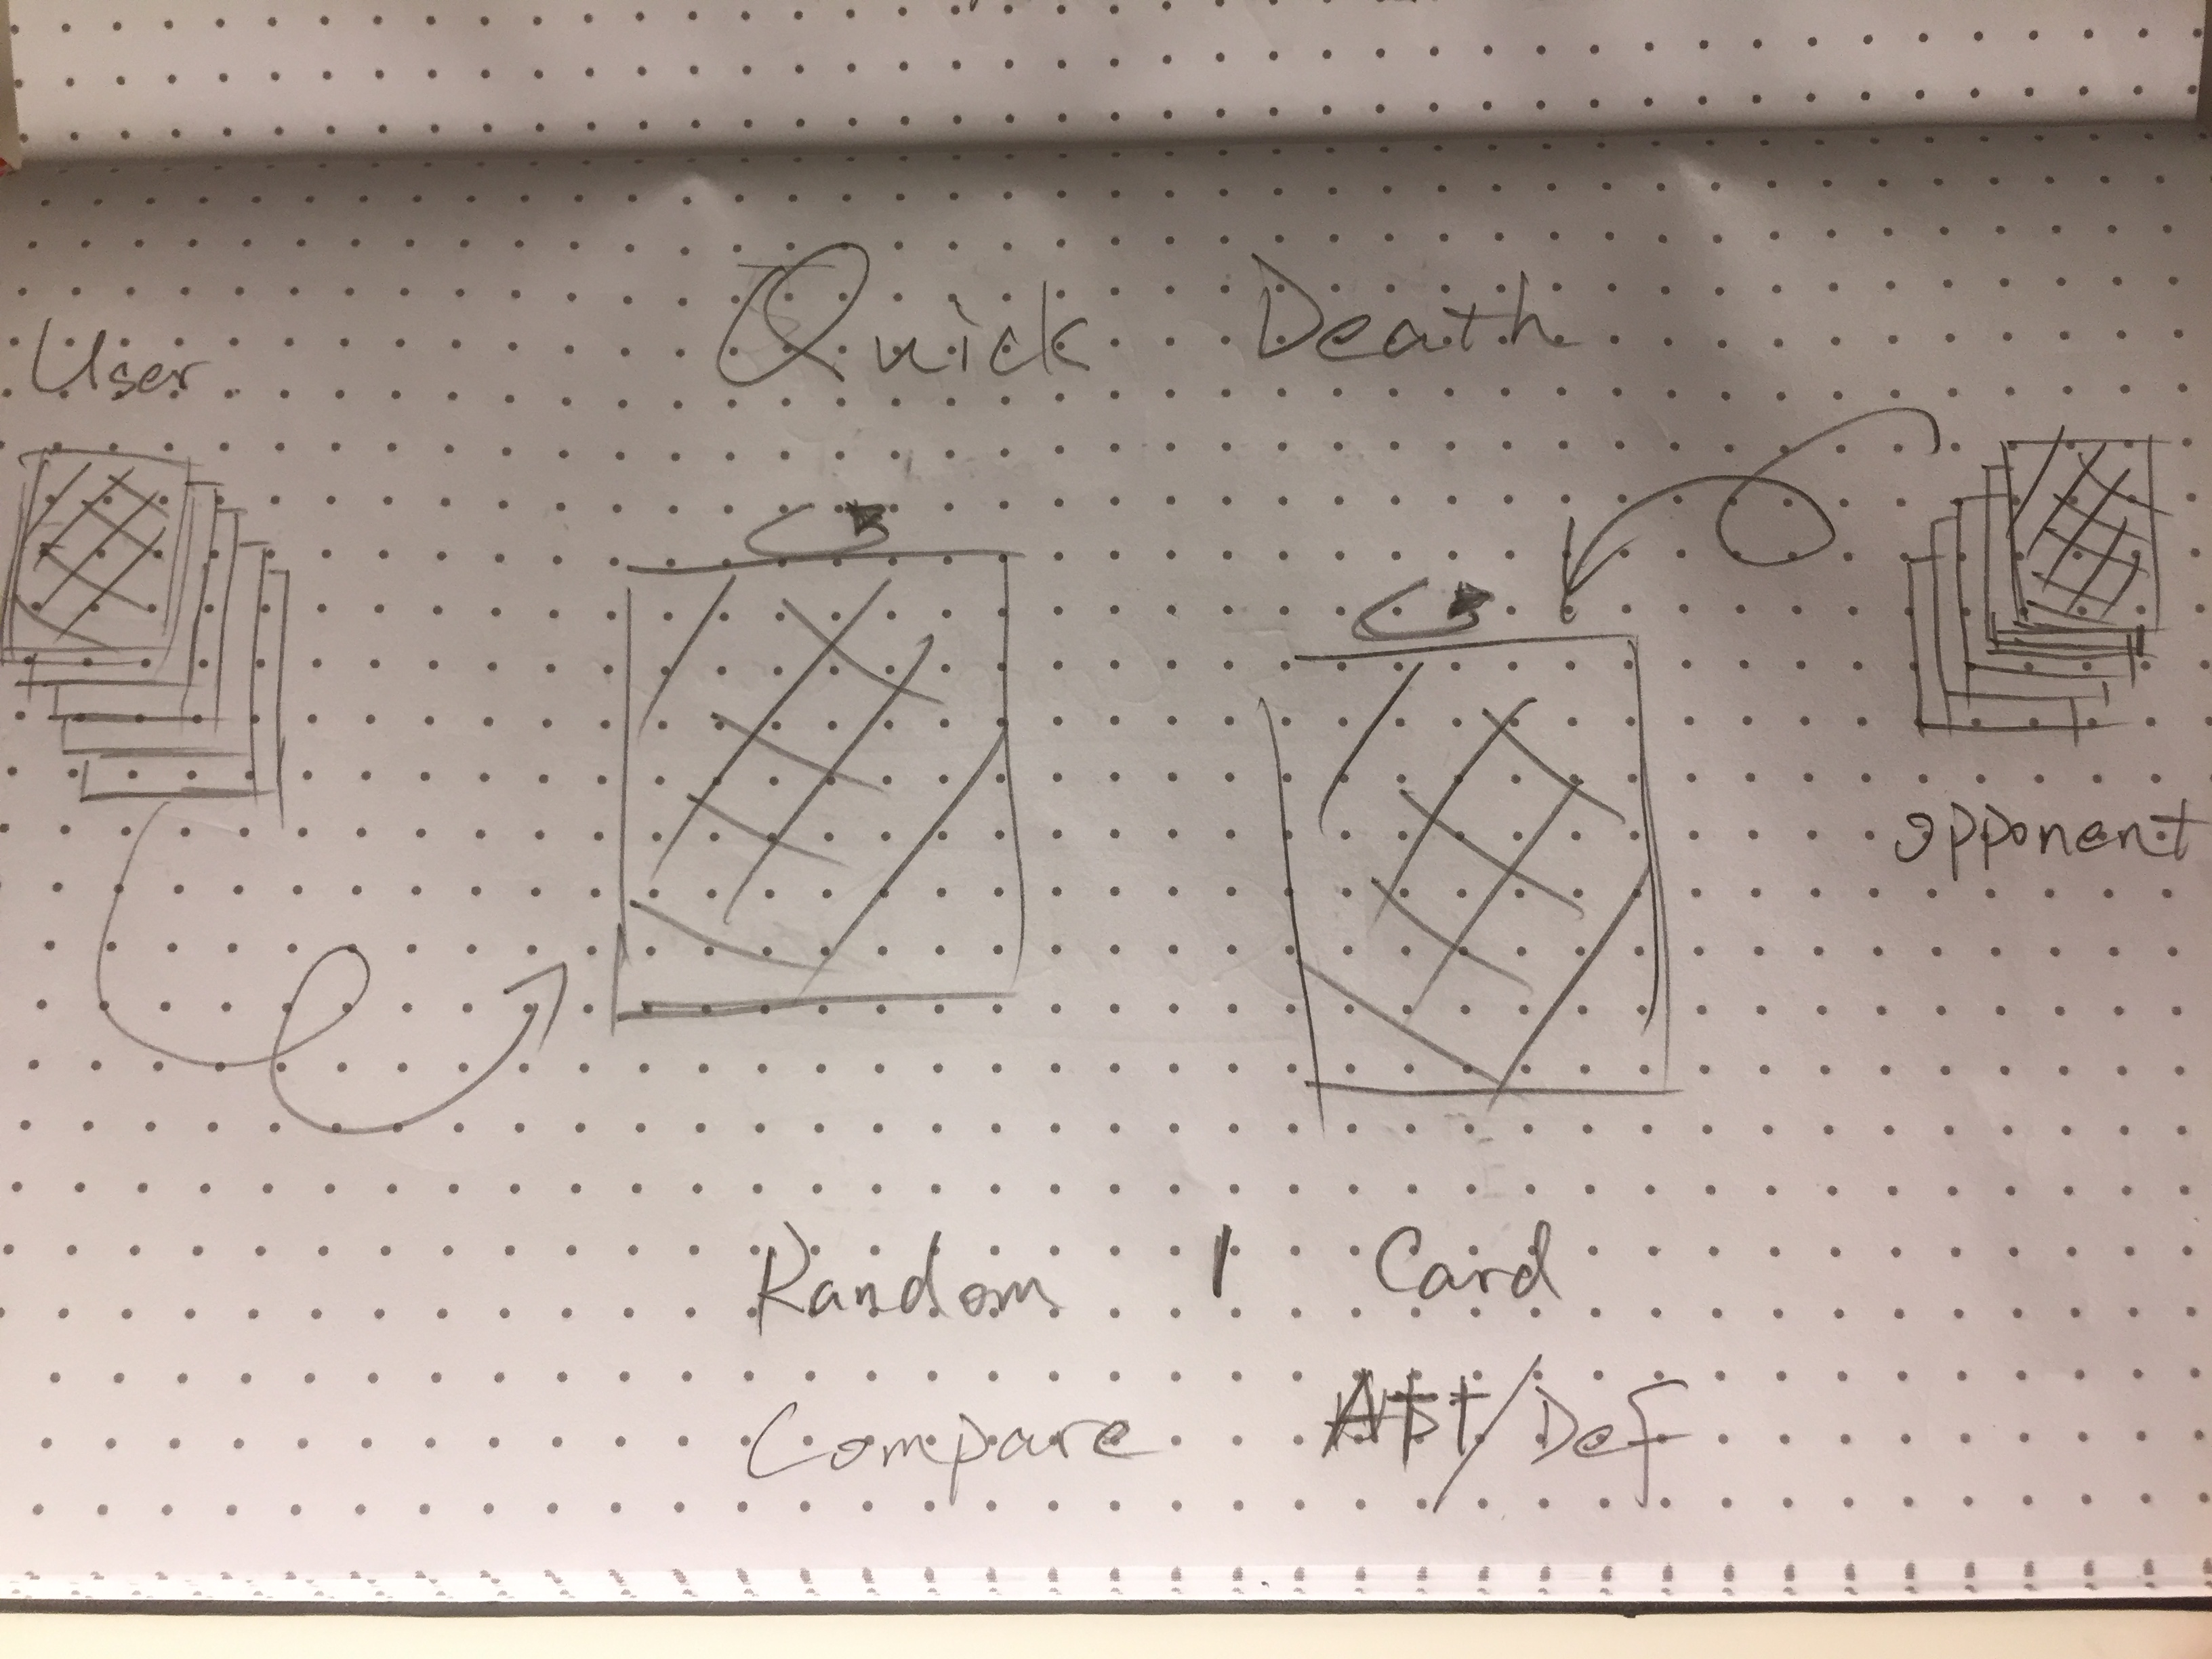 Quick Death
User
opponent
Random 1 Card
Compare /Def